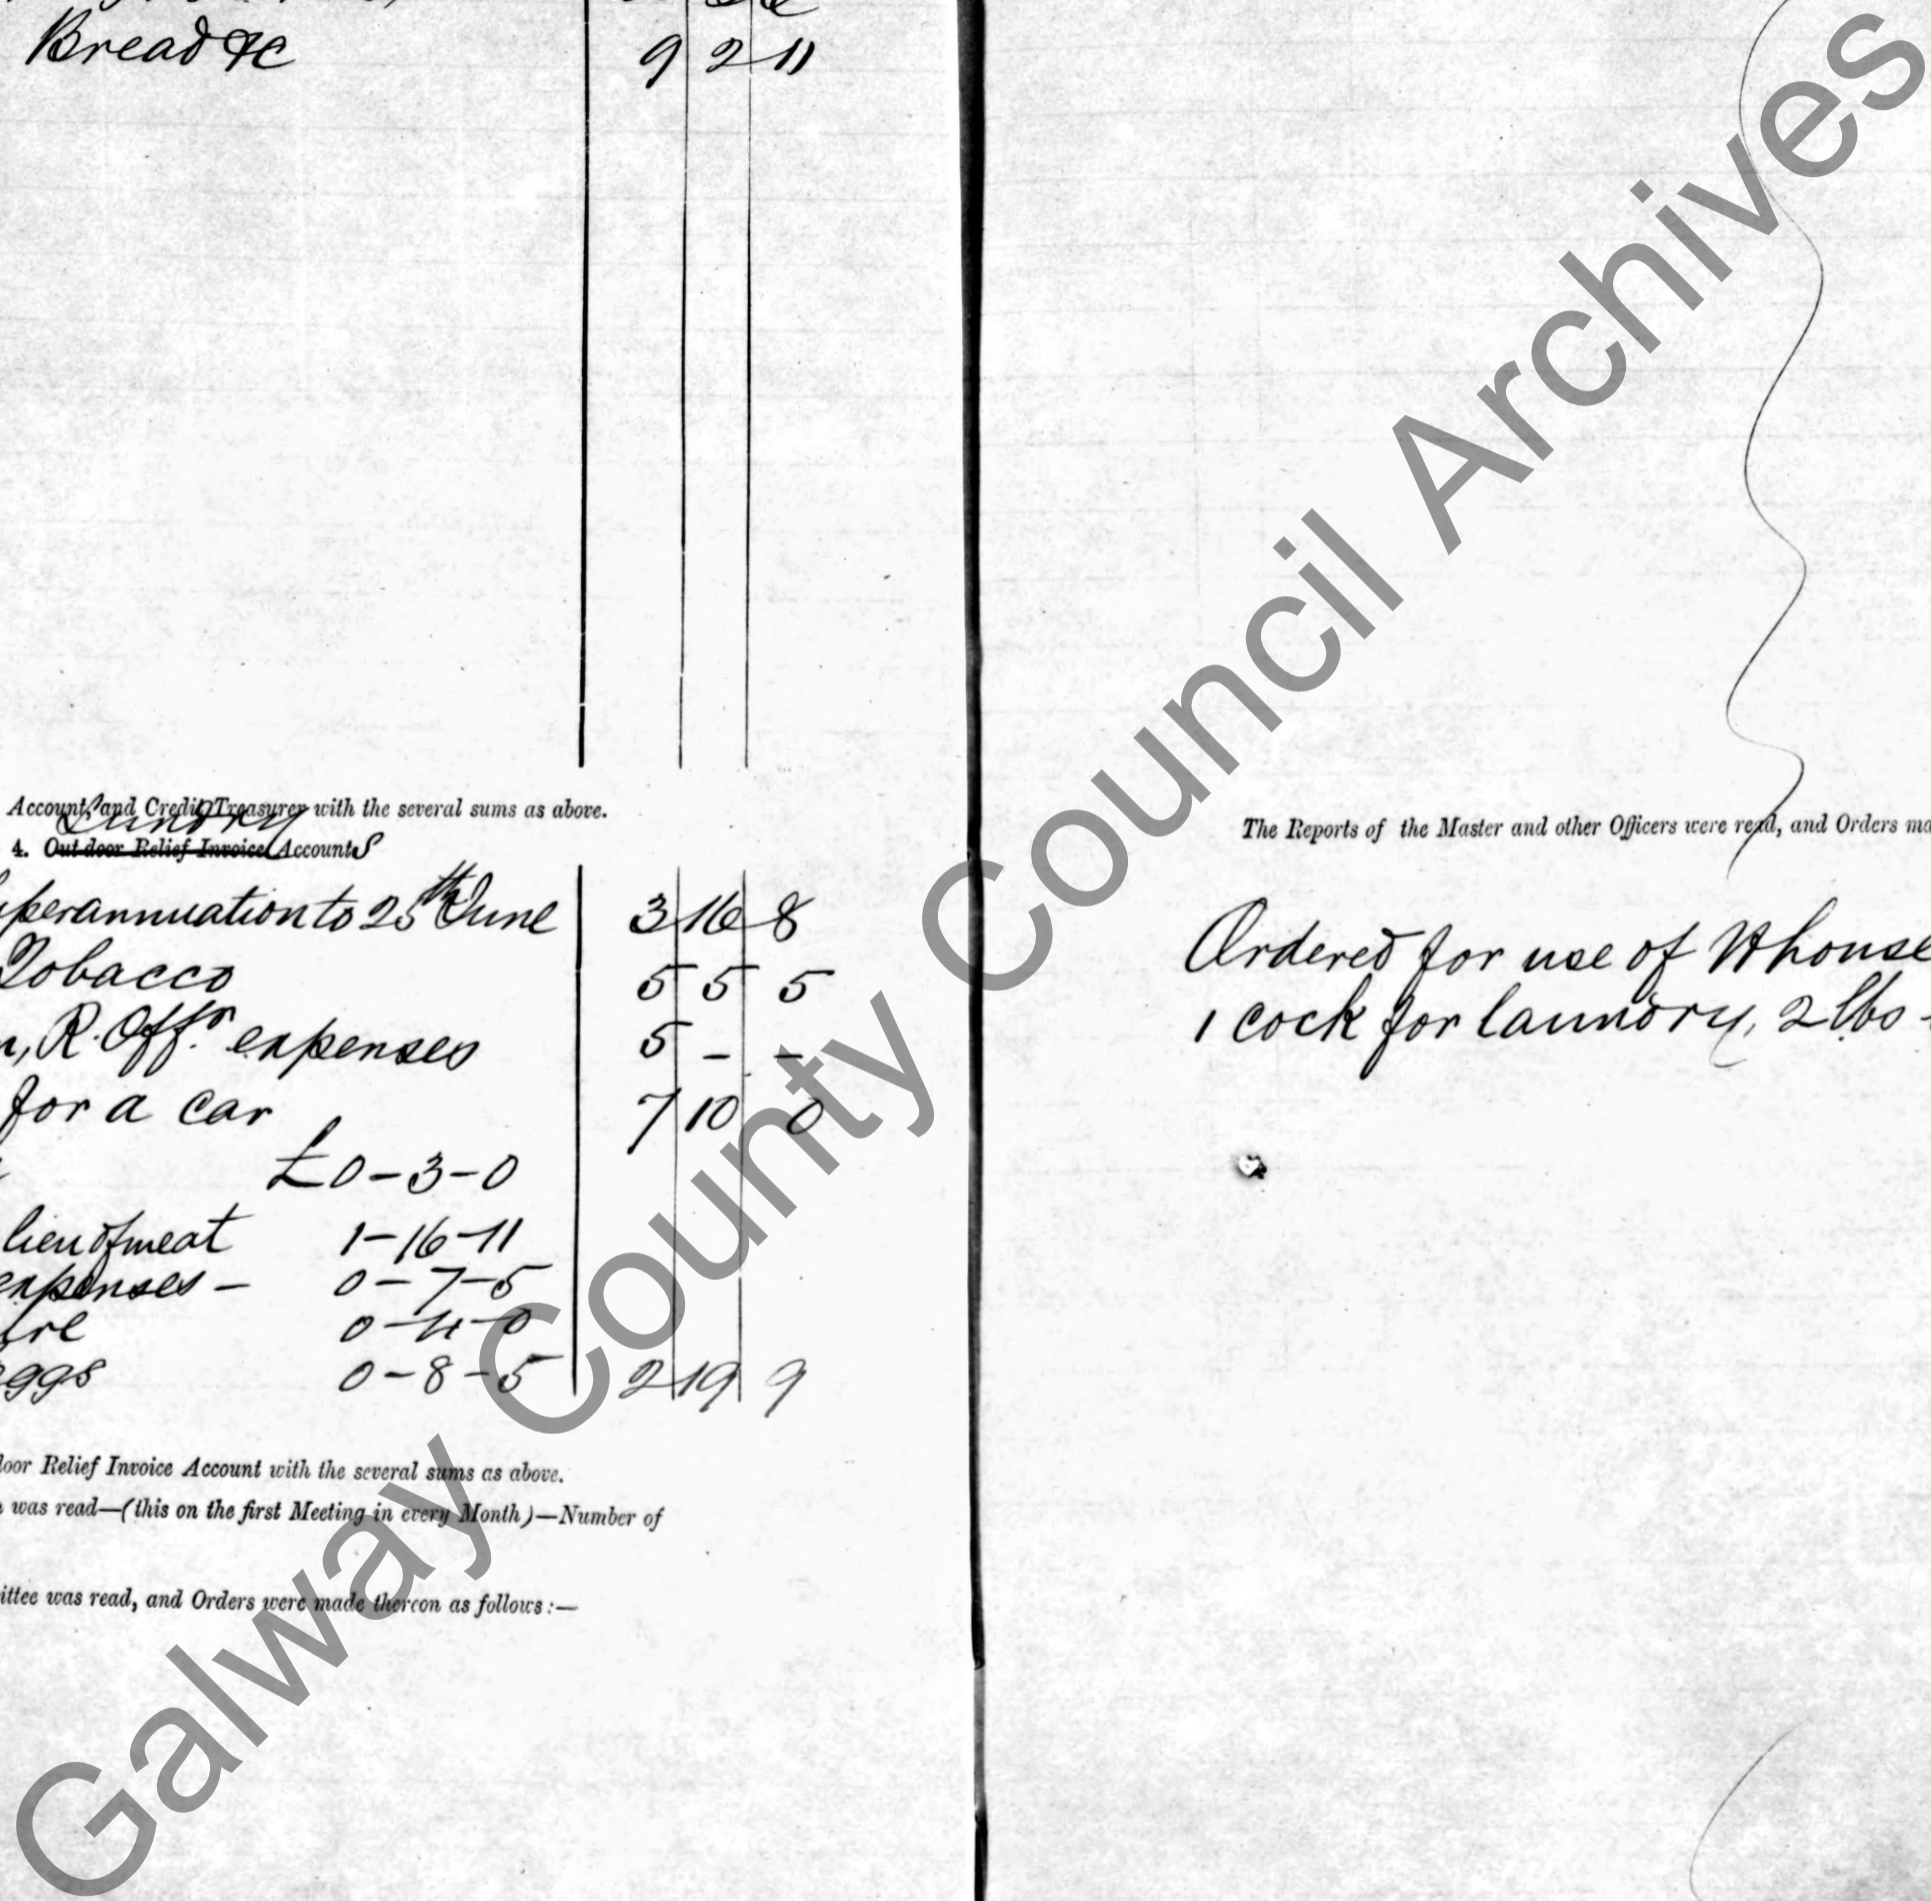 Bread &c 9 2 11
Account, and Credit Treasurer with the several sums as above.
Sundry
4. Out-door Relief Invoice Accounts
uperannuation to 25th June 3 16 8
Tobacco 5 5 5
n, R. Offrs expenses 5 - -
for a car 7 10 0
£0-3-0
lieu of meat 1-16-11
expenses - 0-7-5
ire 0-4-0
eggs 0-8-5 2 19 9
door Relief Invoice Account with the several sums as above.
was read—(this on the first Meeting in every Month)—Number of
ittee was read, and Orders were made thereon as follows:—
The Reports of the Master and other Officers were read, and Orders ma
Ordered for use of Whouse
1 cock for laundry, 2 lbs
Galway County Council Archives